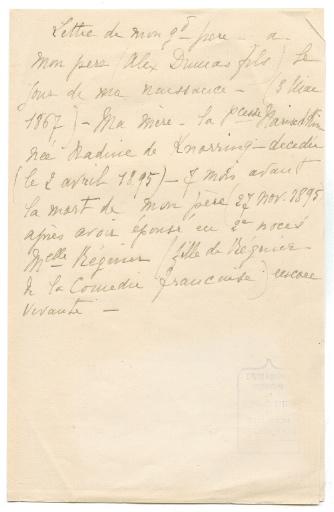 Lettre de mon gd père a
mon père (Alex Dumas fils) le
jour de ma naissance – (3 Mai
1867) – Ma mère – la Pcesse Narischkine
née Nadine de Knorring – décédée
(le 2 avril 1895) – 7 mois avant
la mort de mon père 27 nov. 1895
après avoir épousé en 2e noces
Melle Régnier (fille de Régnier
de la Comedie française) encore
vivante –